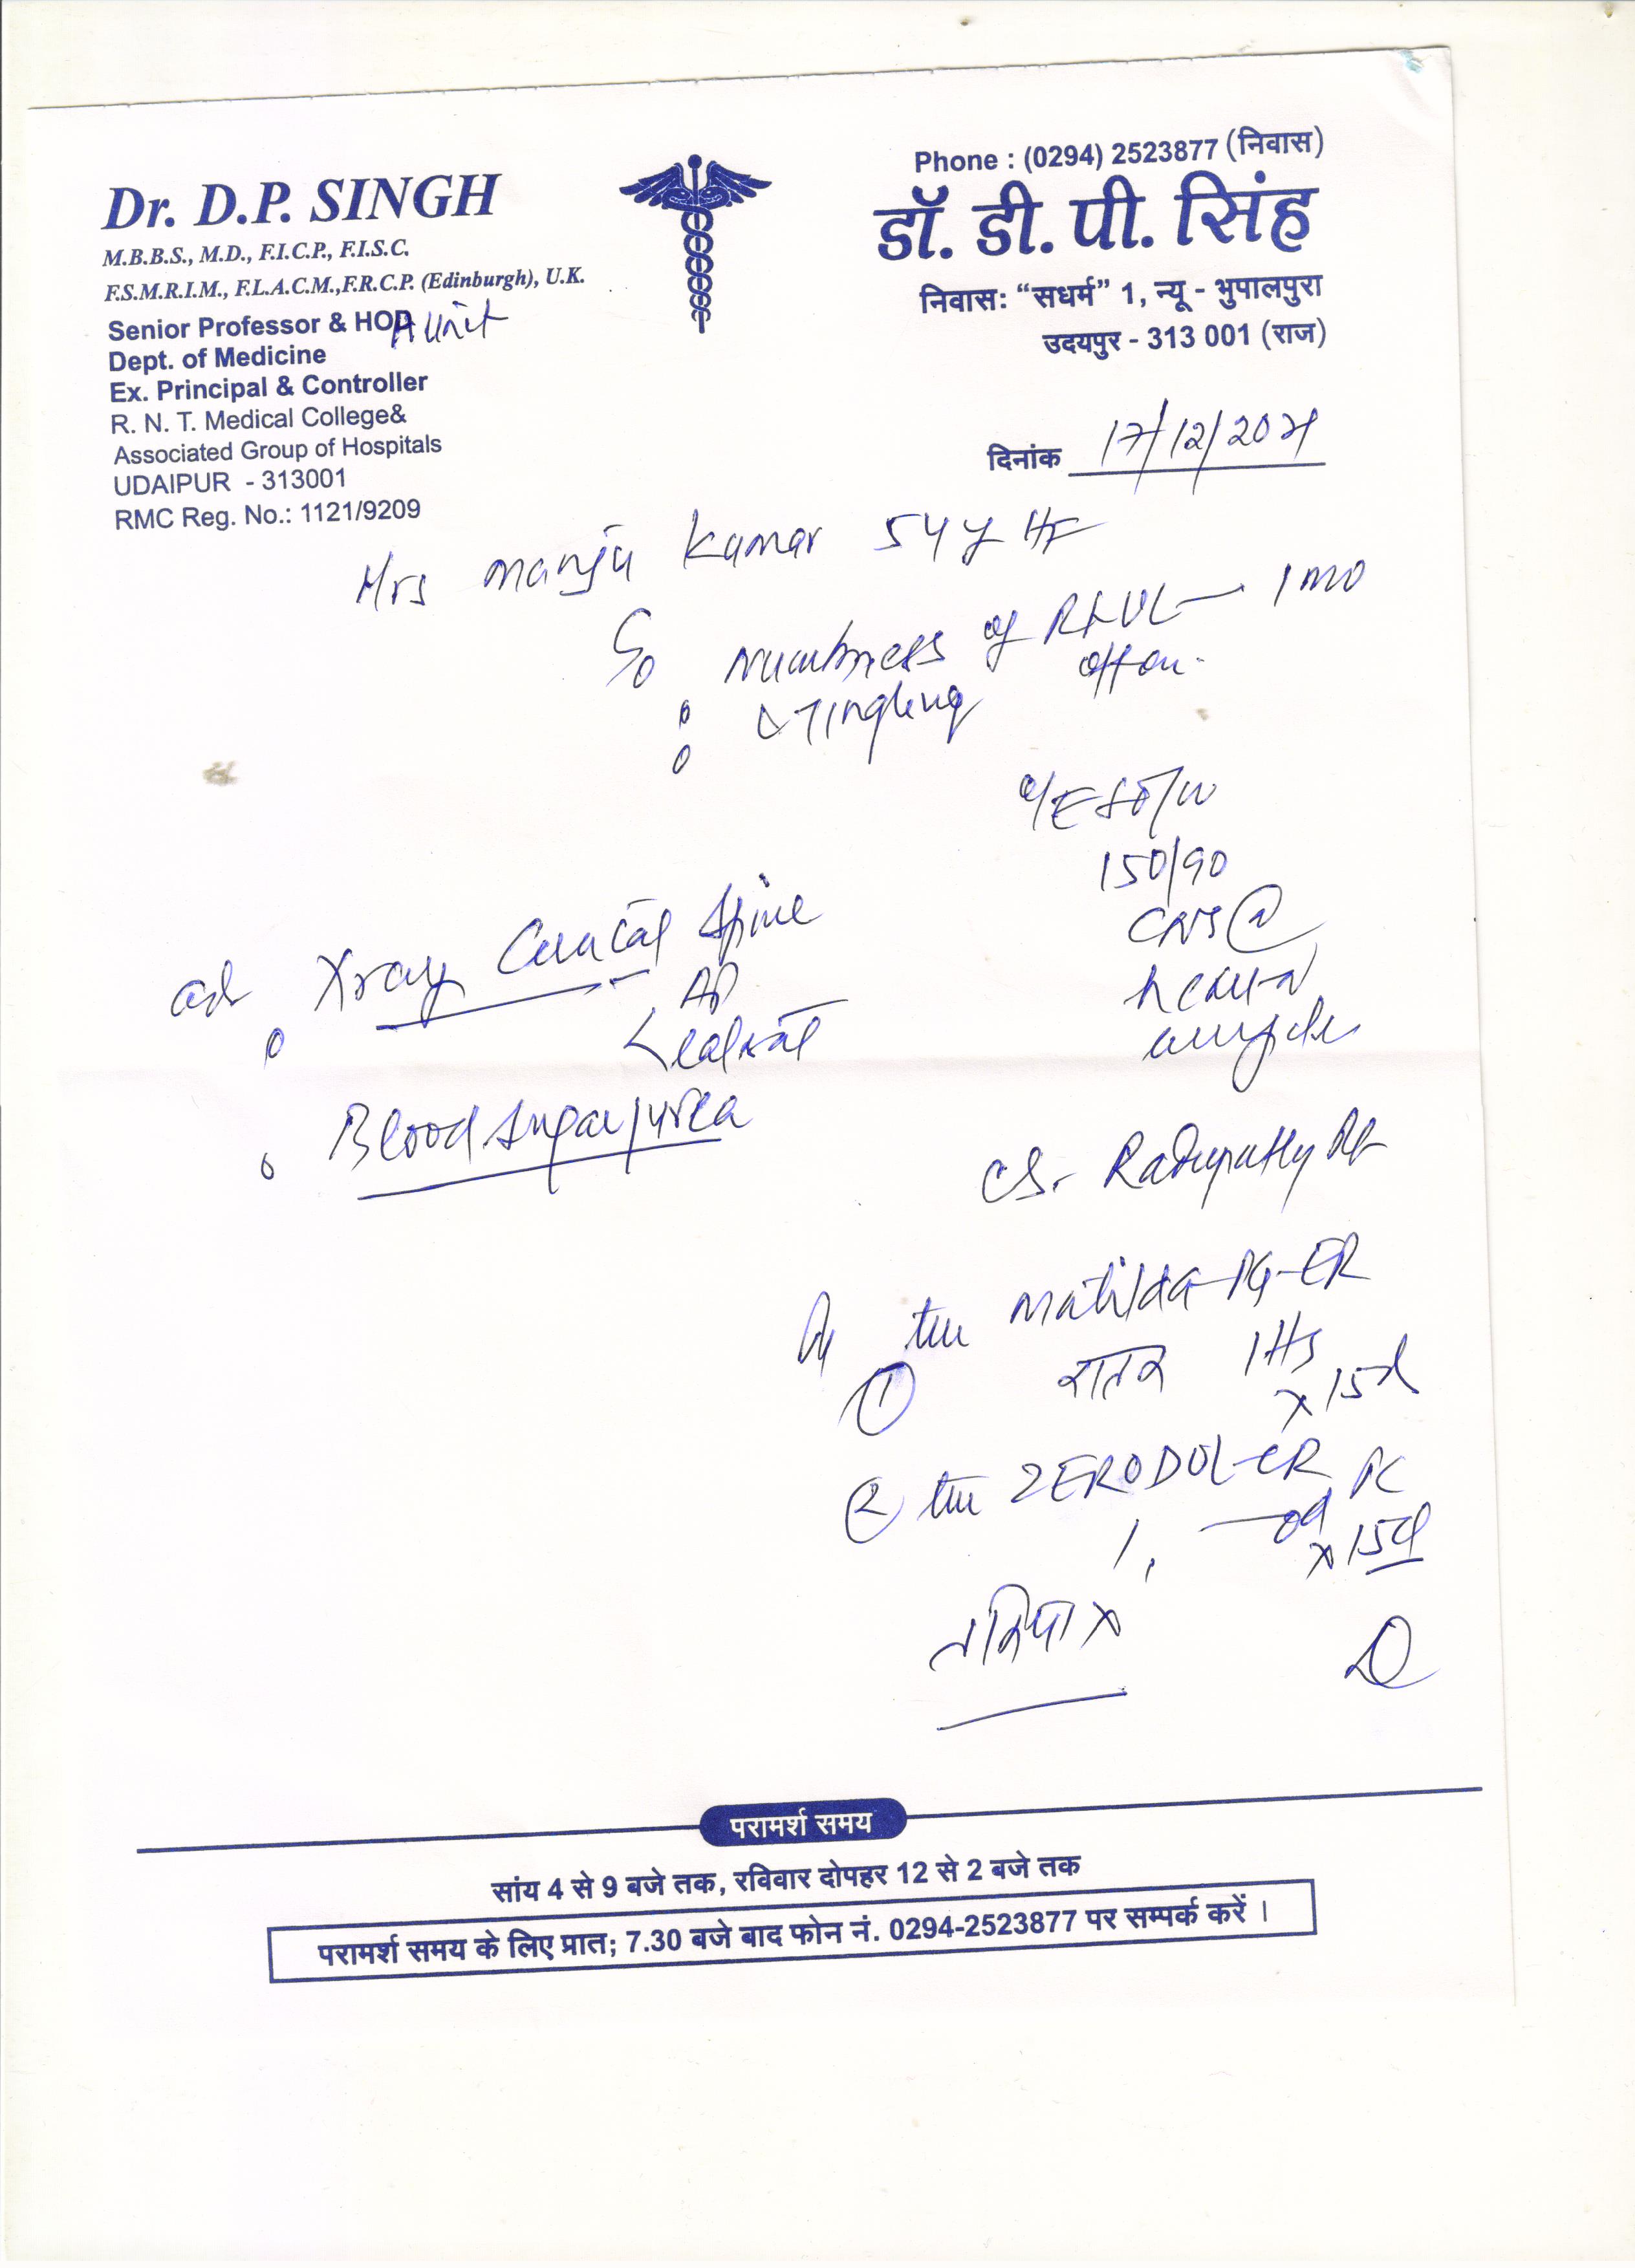 Phone : (0294) 2523877 (निवास)
Dr. D.P. SINGH
M.B.B.S., M.D., F.I.C.P., F.I.S.C.
F.S.M.R.I.M., F.L.A.C.M.,F.R.C.P. (Edinburgh), U.K.
Senior Professor & HOD A Unit
Dept. of Medicine
Ex. Principal & Controller
R. N. T. Medical College&
Associated Group of Hospitals
UDAIPUR - 313001
RMC Reg. No.: 1121/9209
डॉ. डी. पी. सिंह
निवास: “सधर्म” 1, न्यू - भुपालपुरा
उदयपुर - 313 001 (राज)
दिनांक 17/12/2021
Mrs Manju Kumar 54 y HF
Numbness of Rt UL — 1 mo
& Tingling off on
150/90
CNS
adv Xray Cervical Spine
AP
Lateral
Blood Sugar/urea
CS. Radiculopathy Rt
① Matilda-PG-ER
1 HS
x 15d
② ZERODOL-CR PC
1, — od
x 15d
तकिया x
परामर्श समय
सांय 4 से 9 बजे तक, रविवार दोपहर 12 से 2 बजे तक
परामर्श समय के लिए प्रात; 7.30 बजे बाद फोन नं. 0294-2523877 पर सम्पर्क करें ।